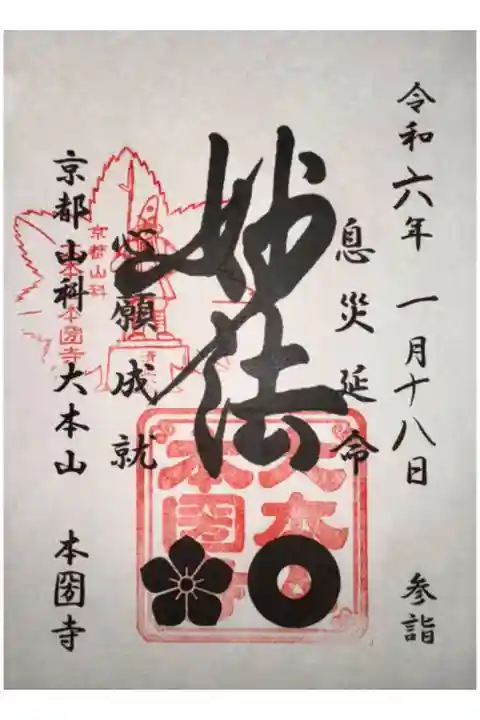 令和六年 一月十八日 参詣
息災延命
妙法
心願成就
京都山科 大本山 本圀寺
京都山科
本圀寺
大本山
本圀寺